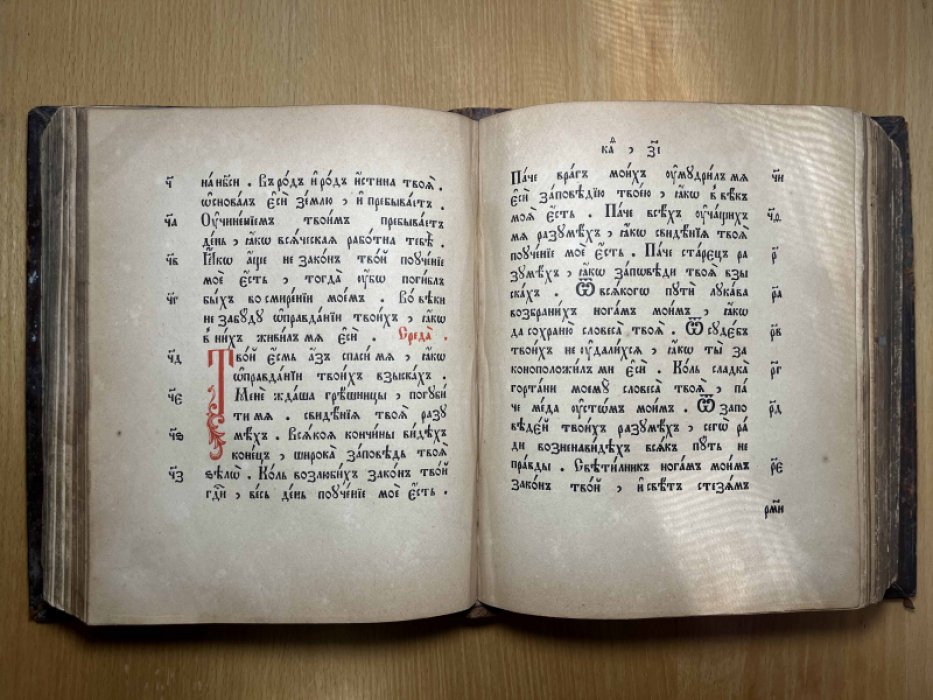 ч҃ на нб҃си . Въ ро́дъ и҆ ро́дъ и҆́стина твоѧ̀ .
ѡ҆снова́лъ є҆сѝ зе́млю , и҆ пребыва́етъ .
ч҃а Оу҆чине́нїемъ твои́мъ пребыва́етъ
де́нь , ꙗ҆́кѡ всѧ́ческаѧ рабо́тна тебѣ̀ .
ч҃в Ꙗ҆́кѡ а҆́ще не зако́нъ тво́й поуче́нїе
моѐ є҆́сть , тогда̀ ᲂу҆́бѡ поги́блъ
ч҃г бы́хъ во смире́нїи мое́мъ . Во́ вѣки
не забу́ду ѡ҆правда́нїи твои́хъ , ꙗ҆́кѡ
в ни́хъ живи́лъ мѧ є҆сѝ . Среда̀ .
ч҃д Тво́й є҆́смь а҆́зъ спаси́ мѧ , ꙗ҆́кѡ
ѡ҆правда́нїи твои́хъ взыска́хъ .
ч҃є Менѐ жда́ша грѣ́шницы , погуби́
ти мѧ . свидѣ́нїѧ твоѧ̀ разу
ч҃ѕ мѣ́хъ . Всѧ́коѧ кончи́ны ви́дѣхъ
коне́цъ , широка̀ за́повѣдь твоѧ̀
ч҃з ѕѣлѡ̀ . Ко́ль возлюби́хъ зако́нъ тво́й
гд҃и , ве́сь де́нь поуче́нїе моѐ є҆́сть .
каѳ , з҃і
Па́че вра́гъ мои́хъ ᲂу҆мудри́лъ мѧ ч҃и
є҆сѝ за́повѣдїю твое́ю , ꙗ҆́кѡ в вѣ́къ
моѧ̀ є҆́сть . Па́че всѣ́хъ ᲂу҆ча́щихъ ч҃ѳ
мѧ разумѣ́хъ , ꙗ҆́кѡ свидѣ́нїѧ твоѧ̀
поуче́нїе моѐ є҆́сть . Па́че ста́рецъ ра р҃
зумѣ́хъ , ꙗ҆́кѡ за́повѣди твоѧ̀ взы
ска́хъ . Ѿ всѧ́когѡ путѝ лука́ва р҃а
возбрани́хъ нога́мъ мои́мъ , ꙗ҆́кѡ
да сохраню̀ словеса̀ твоѧ̀ . Ѿ судѣ́бъ р҃в
твои́хъ не ᲂу҆дали́хсѧ , ꙗ҆́кѡ ты̀ за
коноположи́лъ ми є҆сѝ . Ко́ль сладка̀ р҃г
горта́ни моему̀ словеса̀ твоѧ̀ , па́
че ме́да ᲂу҆стѡ́мъ мои́мъ . Ѿ за́по р҃д
вѣдей твои́хъ разумѣ́хъ , сегѡ̀ ра́
ди возненави́дѣхъ всѧ́къ пу́ть не
пра́вды . Свѣти́лникъ нога́мъ мои́мъ р҃є
зако́нъ тво́й , и҆ свѣ́тъ стезѧ́мъ
рм҃и